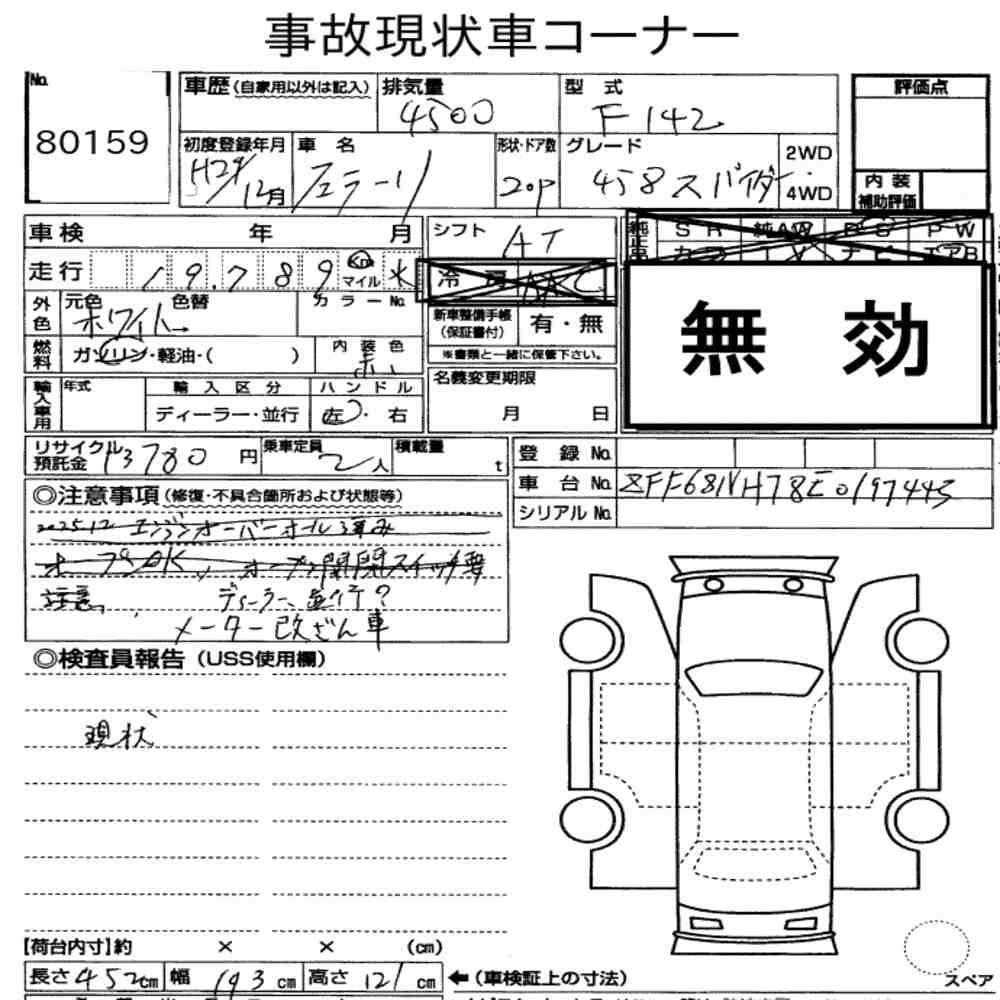 事故現状車コーナー
No. 80159
車歴(自家用以外は記入) 排気量 4500 型 式 F142
初度登録年月 H24 12月 車 名 フェラーリ 形状・ドア数 2op グレード 458スパイダー 2WD・4WD
評価点
内 装
補助評価
車 検 年 月 シフト AT
走行 19,789 Km マイル
冷 房 AAC
外色 元色 ホワイト 色替 カラーNo.
新車整備手帳
(保証書付) 有・無
※書類と一緒に保管下さい。
燃料 ガソリン・軽油・( ) 内装色 赤
無 効
輸入車用 年式 輸入区分 ハンドル
ディーラー・並行 左・右
名義変更期限
月 日
リサイクル
預託金 13780 円 乗車定員 2人 積載量 t
登 録 No.
車 台 No. ZFF68NHT8E0197443
シリアル No.
◎注意事項(修復・不具合箇所および状態等)
2025.12 エンジンオーバーオール済み
オープンOK, オープン開閉スイッチ要
注意。 ディーラー、並行?
メーター改ざん車
◎検査員報告(USS使用欄)
現状
【荷台内寸】約 × × (cm)
長さ 452 cm 幅 193 cm 高さ 121 cm ←(車検証上の寸法)
スペア